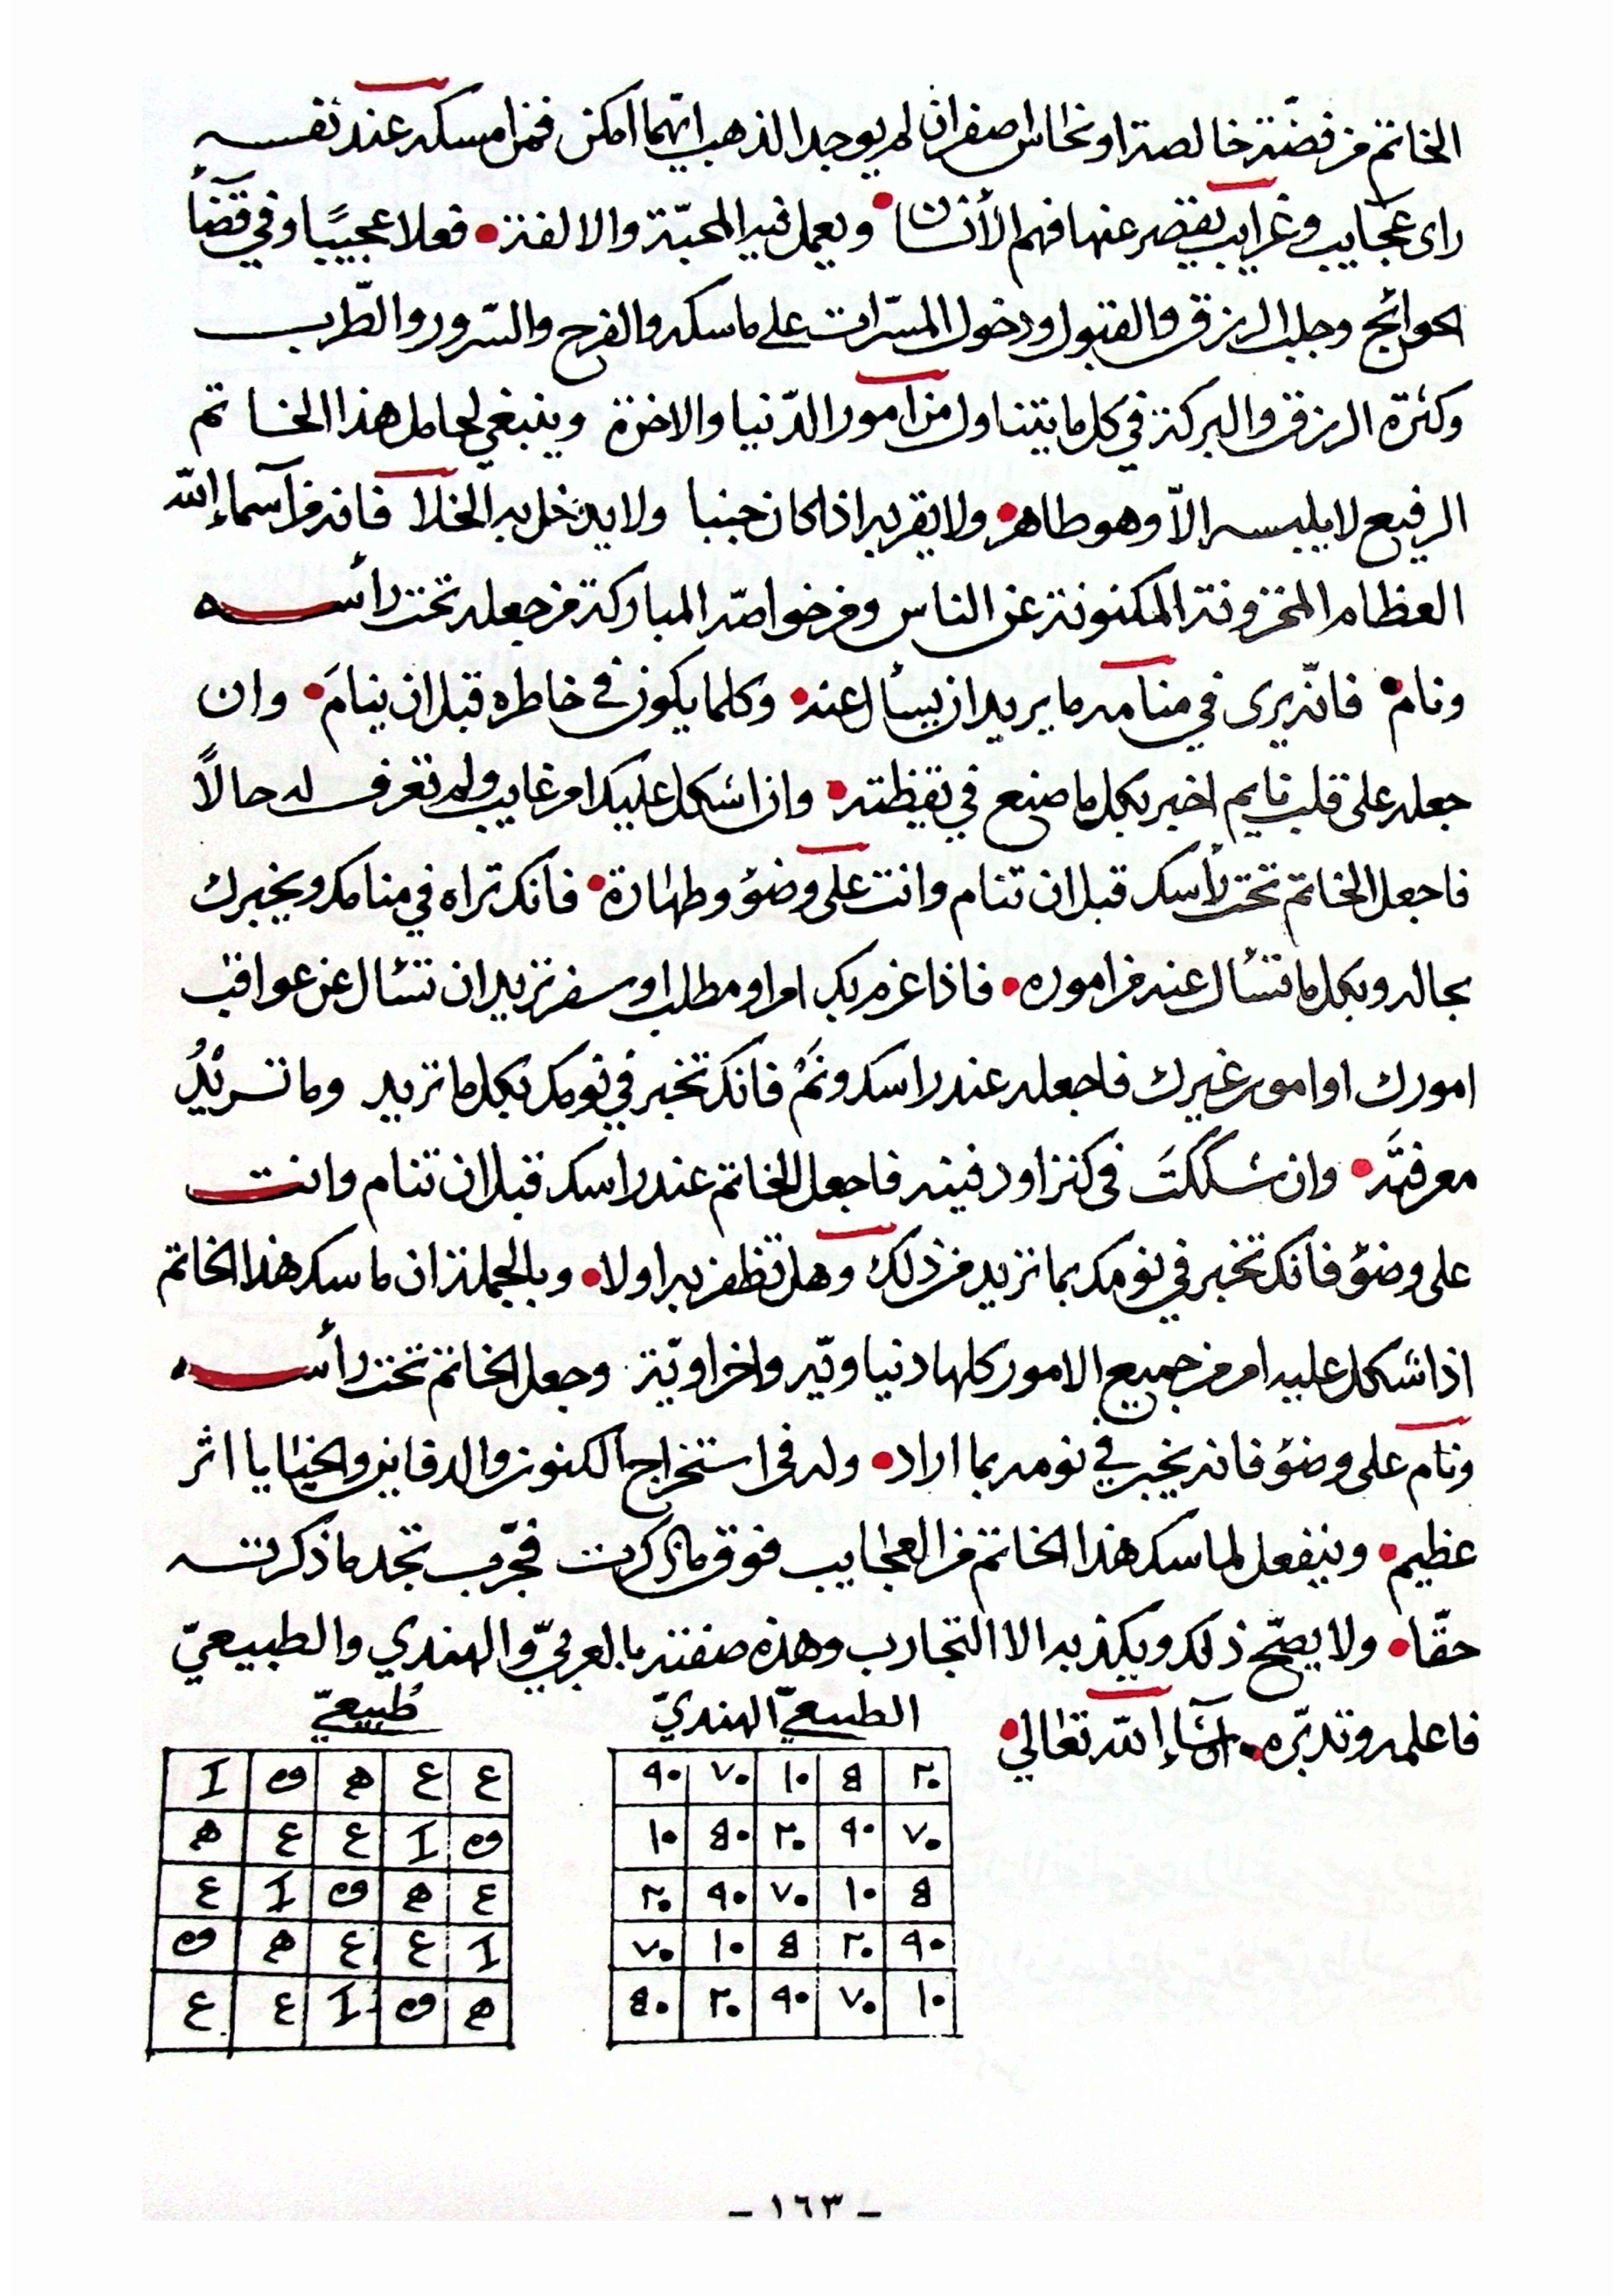 الخاتم من فضة خالصة او نحاس اصفران لم يوجد الذهب ايهما امكن فمن امسكه عند نفسه
راى عجايب وغرايب يقصر عنها فهم الأنسان ويعمل فيه المحبّة والالفة فعلا عجيبًا وفي قضآ
الحوائج وجلب الرزق والقبول ودخول المسرّات على ماسكه والفرح والسّرور والطّرب
وكثرة الرزق والبركة في كل ما يتناول من امور الدّنيا والاخرة وينبغي لحامل هذا الخاتم
الرفيع لا يلبسه الاّ وهو طاهر ولا يقربه اذا كان جنبا ولا يدخل به الخلا فانه من آسماء الله
العظام المخزونة المكنونة عن الناس ومن خواصّه المباركة من جعله تحت رأسه
ونام فانّه يرى في منامه ما يريد ان يسأل عنه وكلما يكون في خاطره قبل ان ينامَ وان
جعله على قلب نايم اخبر بكل ما صنع في يقظته وان اشكل عليك امر غايب ولم تعرف له حالاً
فاجعل الخاتم تحت رأسك قبل ان تنام وانت على وضؤ وطهارة فانك تراه في منامك ويخبرك
بحاله وبكل ما تسأل عنه من اموره فاذا عزم بك امر او مطلب او سفر تريد ان تسئال عن عواقب
امورك او امور غيرك فاجعله عند راسك ونَمْ فانك تخبر في نومك بكل ما تريد وما تريْدُ
معرفتَه وان شككتَ في كنز او دفينه فاجعل الخاتم عند راسك قبل ان تنام وانت
على وضؤ فانك تخبر في نومك بما تريد من ذلك وهل تظفر به او لا وبالجملة ان ماسك هذا الخاتم
اذا شكل عليه امر من جميع الامور كلها دنياويّه واخراويّة وجعل الخاتم تحت رأسه
ونام على وضؤ فانه يخبر في نومه بما اراد وله في استخراج الكنوز والدفاين والخبايا اثر
عظيم وينفعل لماسك هذا الخاتم من العجايب فوق ما ذكرت فجّرب تجد ما ذكرته
حقّا ولا يصّح ذلك ويكذبه الا التجارب وهذه صفته بالعربيّ والهندي والطبيعيّ
فاعلمه وتدبّره انشاء الله تعالي
الطبيعيّ الهنديّ
٢٠ 8 ١٠ ٧٠ ٩٠
٧٠ ٩٠ ٢٠ 8٠ ١٠
8 ١٠ ٧٠ ٩٠ ٢٠
٩٠ ٢٠ 8 ١٠ ٧٠
١٠ ٧٠ ٩٠ ٢٠ 8٠
طبيعيّ
- ١٦٣ -